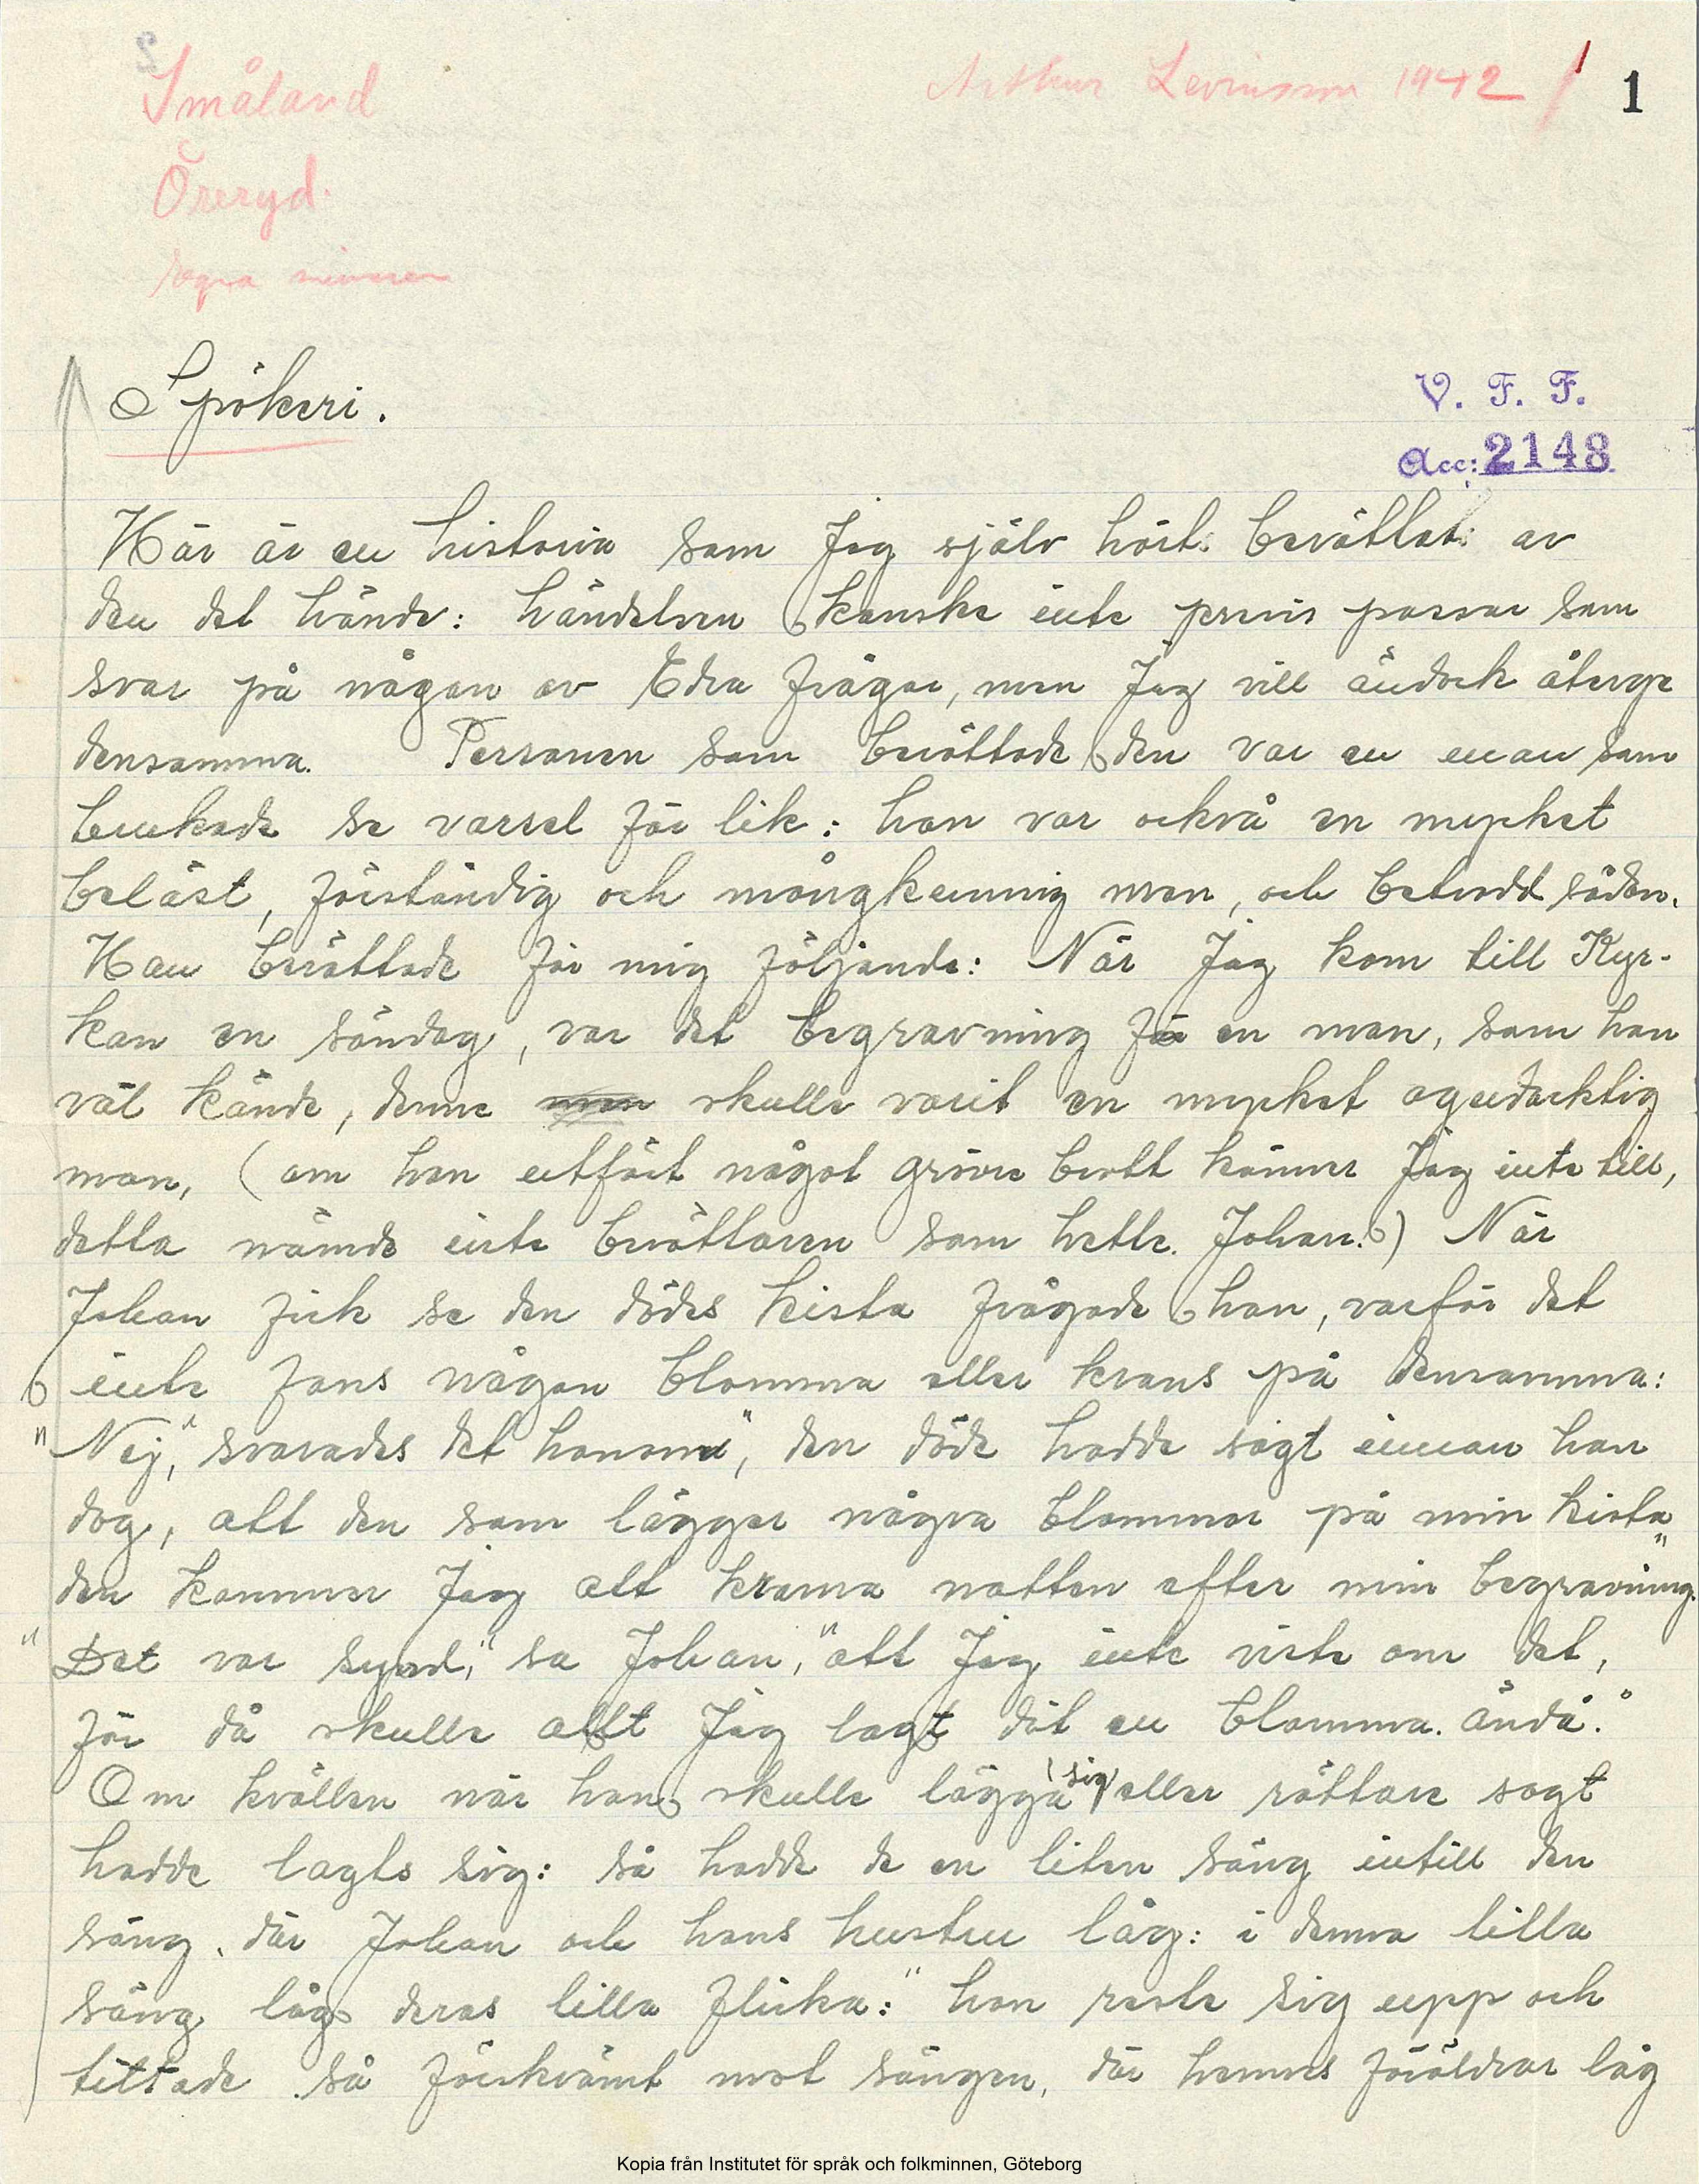 Småland
Arthur Levinsson 1942 / 1
Öreryd.
Spökeri.
V. F. F.
Acc: 2148
Här är en historia som Jag själv hört berättat av
den det hände: händelsen kanske inte precis passar som
svar på någon av Edra frågor, men Jag vill ändock återge
densamma. Personen som berättade den var en man som
brukade se varsel för lik: han var också en mycket
beläst, förståndig och mångkunnig man, och betrodd sådan.
Han berättade för mig följande: När Jag kom till Kyr-
kan en söndag, var det begravning för en man, som han
väl kände, denne skulle varit en mycket ogudacktig
man, (om han utfört något grövre brott känner Jag inte till,
detta nämde inte berättaren som hette Johan.) När
Johan fick se den dödes kista frågade han, varför det
inte fans någon blomma eller krans på densamma:
"Nej," svarades det honom", den döde hadde sagt innan han
dog, att den som lägger några blommor på min kista
den kommer Jag att krama natten efter min begravning."
"Det var synd," sa Johan, "att Jag inte viste om det,
för då skulle allt Jag lagt dit en blomma. ändå."
Om kvällen när han skulle lägga sig eller rättare sagt
hadde lagts sig: så hadde de en liten säng intill den
säng, där Johan och hans hustru låg: i denna lilla
säng låg deras lilla flicka:" hon reste sig upp och
tittade så förskrämt mot sängen, där hennes föräldrar låg
Kopia från Institutet för språk och folkminnen, Göteborg